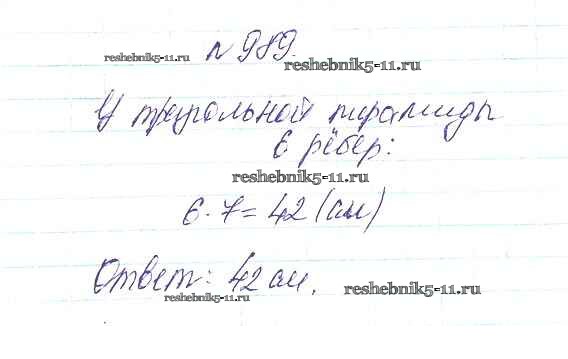 n 989.
reshebnik5-11.ru reshebnik5-11.ru
У треугольной пирамиды
6 рёбер:
reshebnik5-11.ru
6 · 7 = 42 (см)
Ответ: 42 см.
reshebnik5-11.ru reshebnik5-11.ru